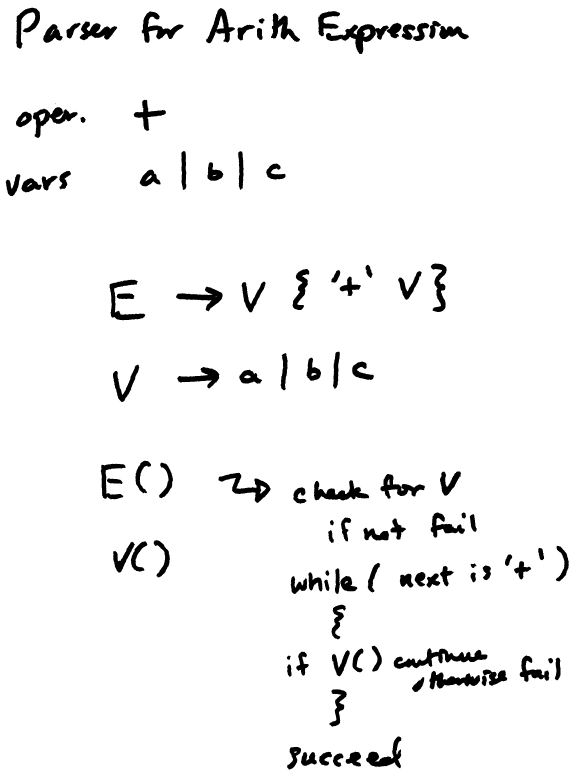 Parser for Arith Expression
oper. +
vars a | b | c
E → V { '+' V }
V → a | b | c
E() ↝ check for V
if not fail
V()
while ( next is '+' )
{
if V() continue
otherwise fail
}
succeed